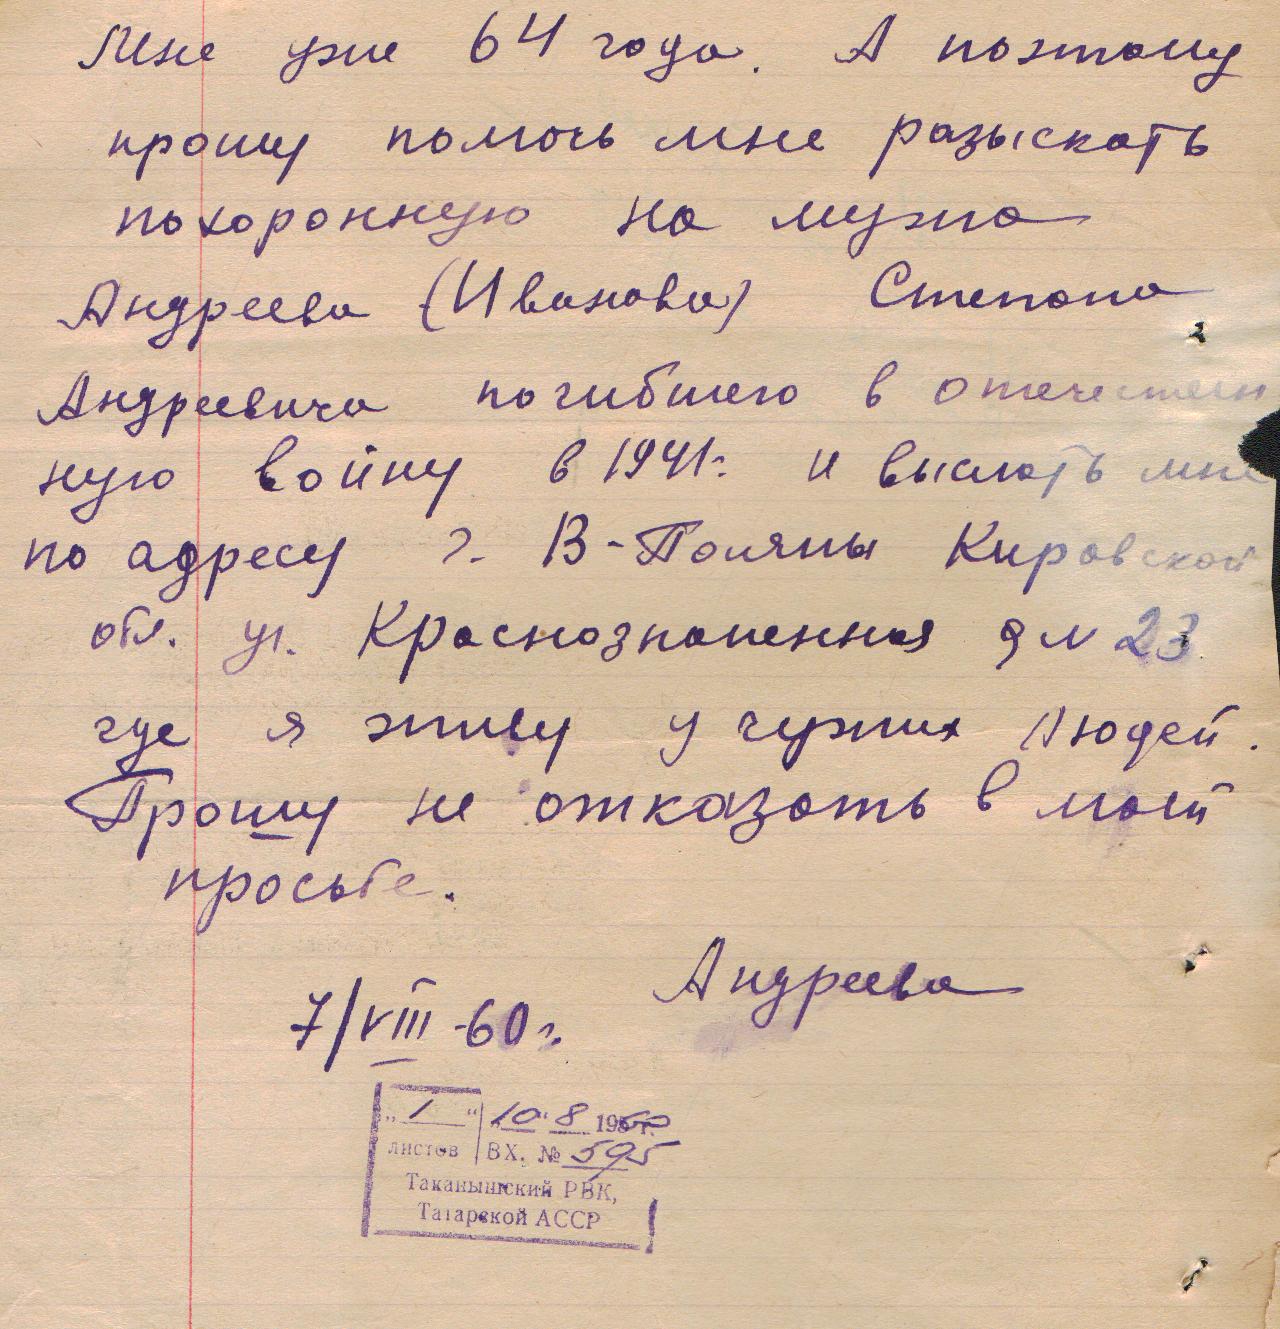 Мне уже 64 года. А поэтому
прошу помочь мне разыскать
похоронную на мужа
Андреева (Иванова) Степана
Андреевича погибшего в отечествен
ную войну в 1941г. и выслать мне
по адресу г. В-Поляны Кировской
обл. ул. Краснознаменная д № 23
где я живу у чужих людей.
Прошу не отказать в моей
просьбе.
Андреева
7/VIII-60г.
„1“ 10" 8 1960г.
листов ВХ. № 595
Таканышский РВК,
Татарской АССР